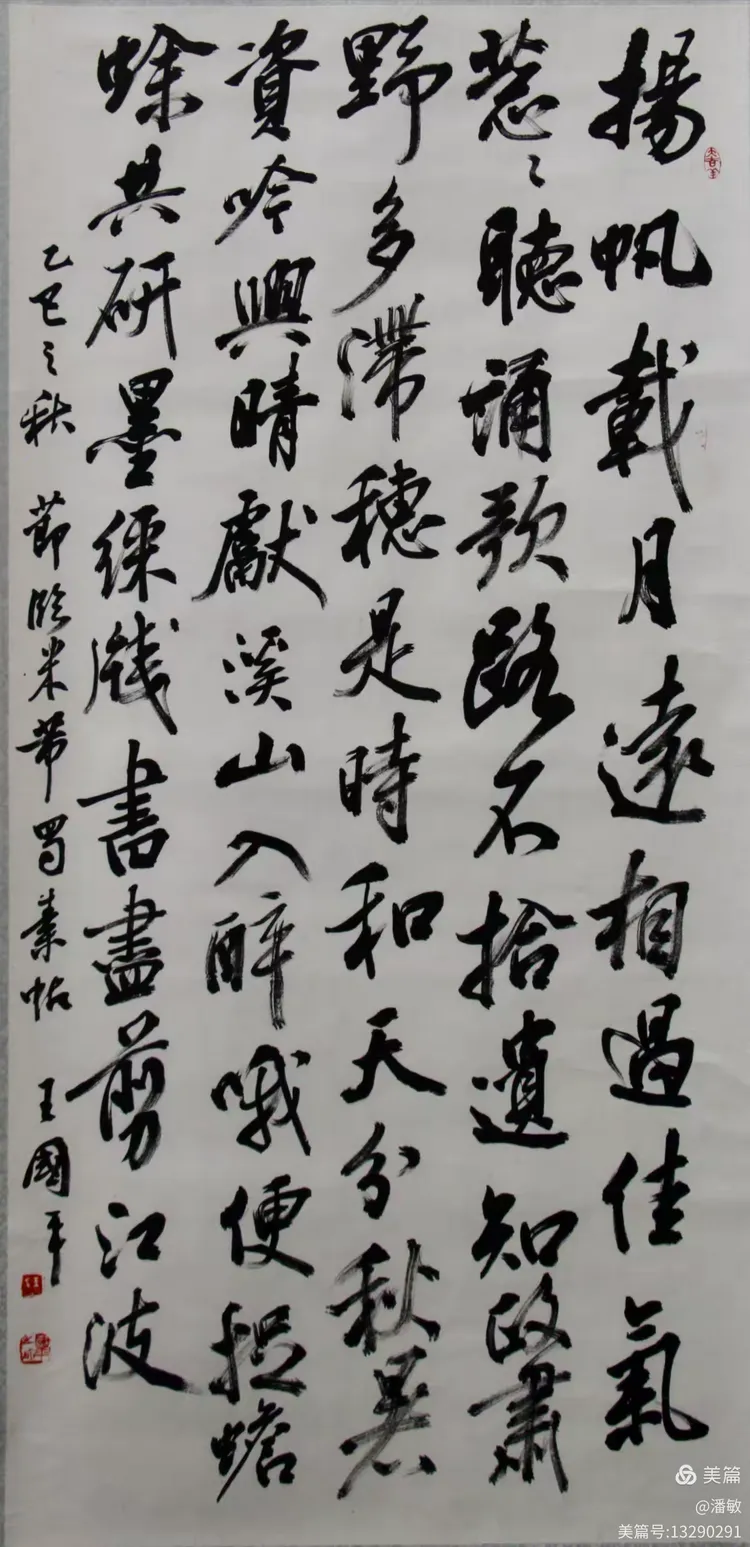 揚帆載月遠相過佳氣
葱〻聽誦歌路不拾遺知政肅
野多滯穗是時和天分秋暑
資吟興晴獻溪山入醉哦便捉蟾
蜍共研墨綵牋書盡剪江波
乙巳之秋 節臨米芾蜀素帖 王國平
美篇
@潘敏
美篇号:13290291